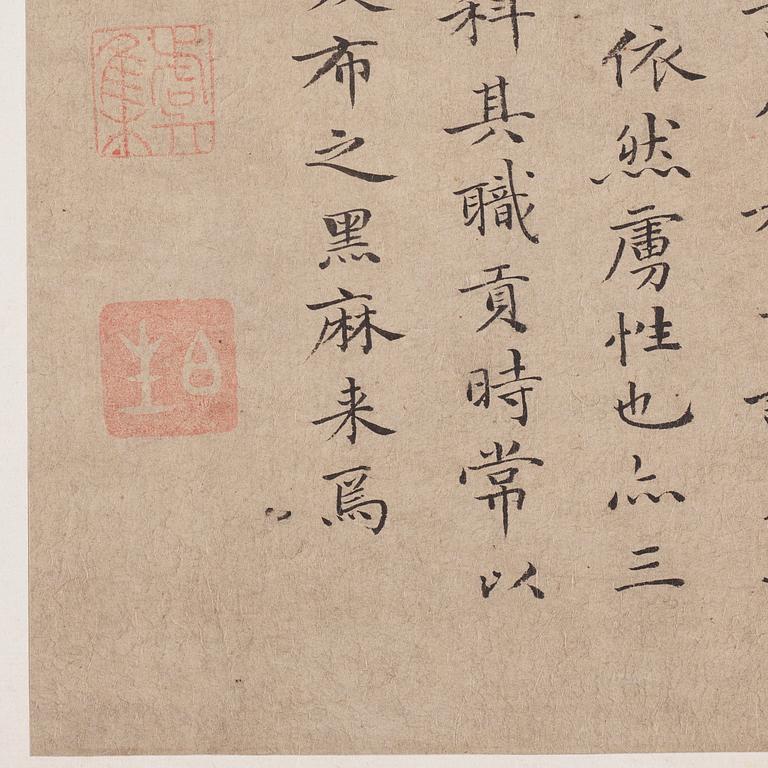 依然虜性也亦三
科其職貢時常以
布之黑麻来爲